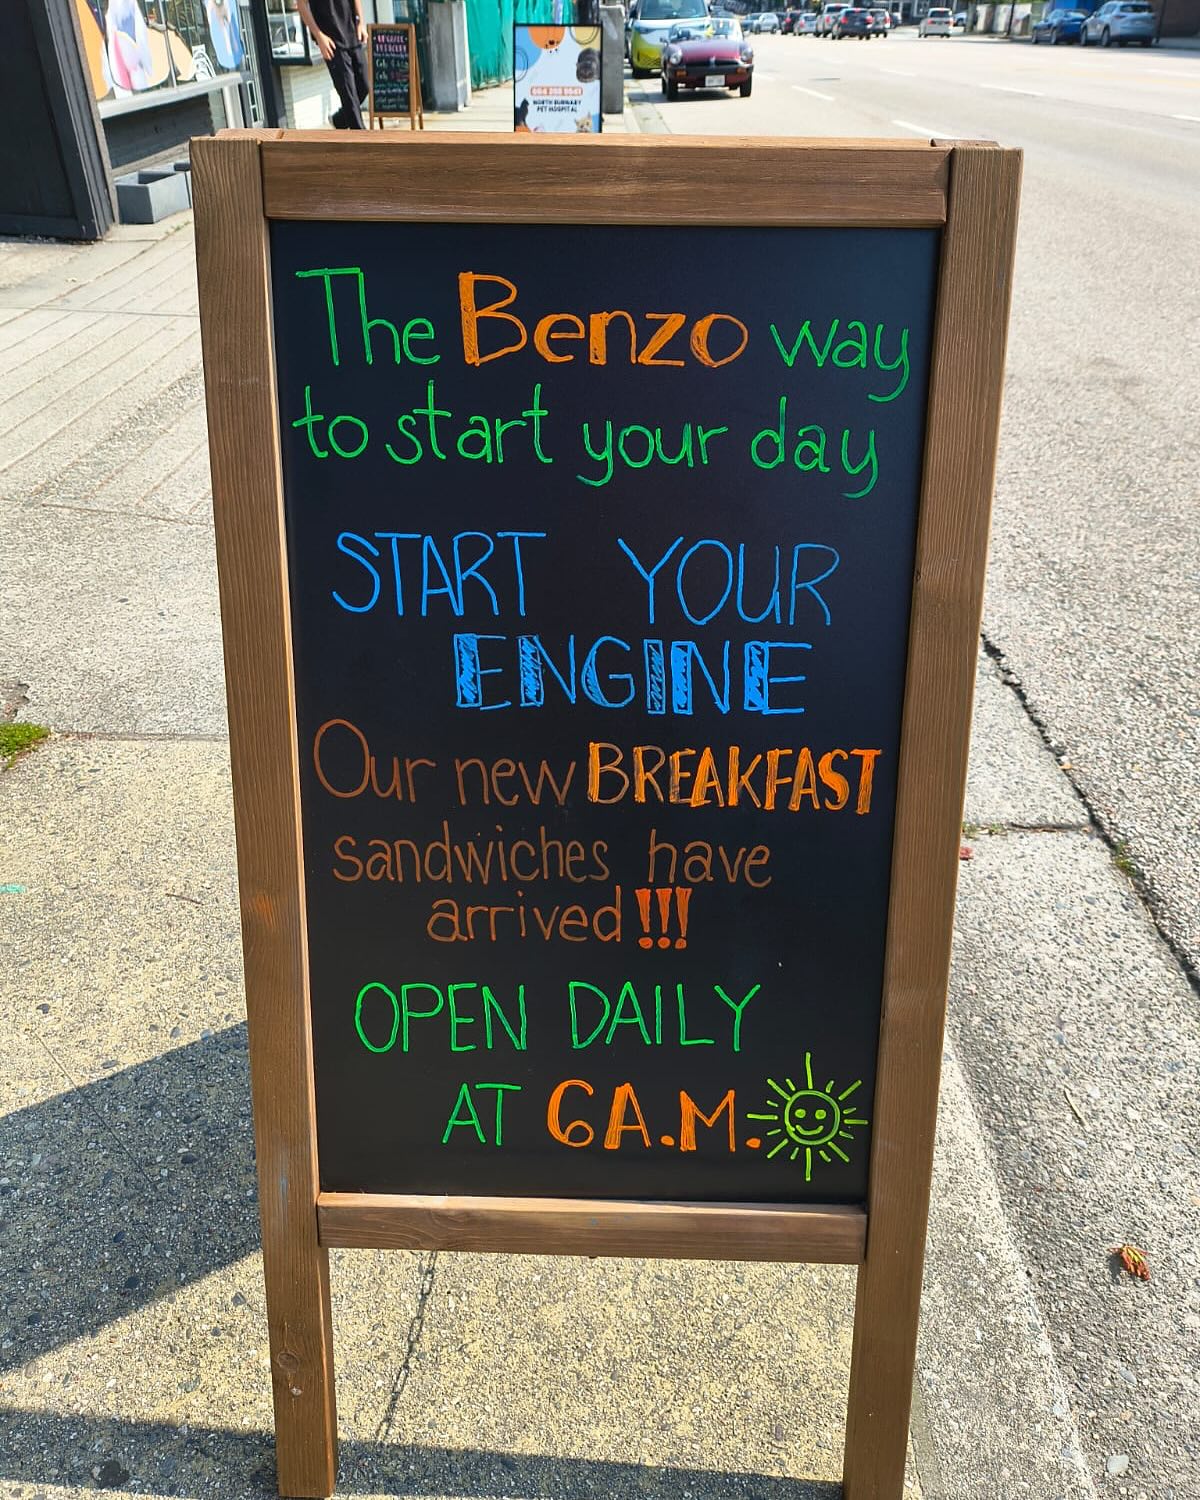 604 255 5561
NORTH BURNABY
PET HOSPITAL
The Benzo way
to start your day
START YOUR
ENGINE
Our new BREAKFAST
sandwiches have
arrived!!!
OPEN DAILY
AT 6A.M.